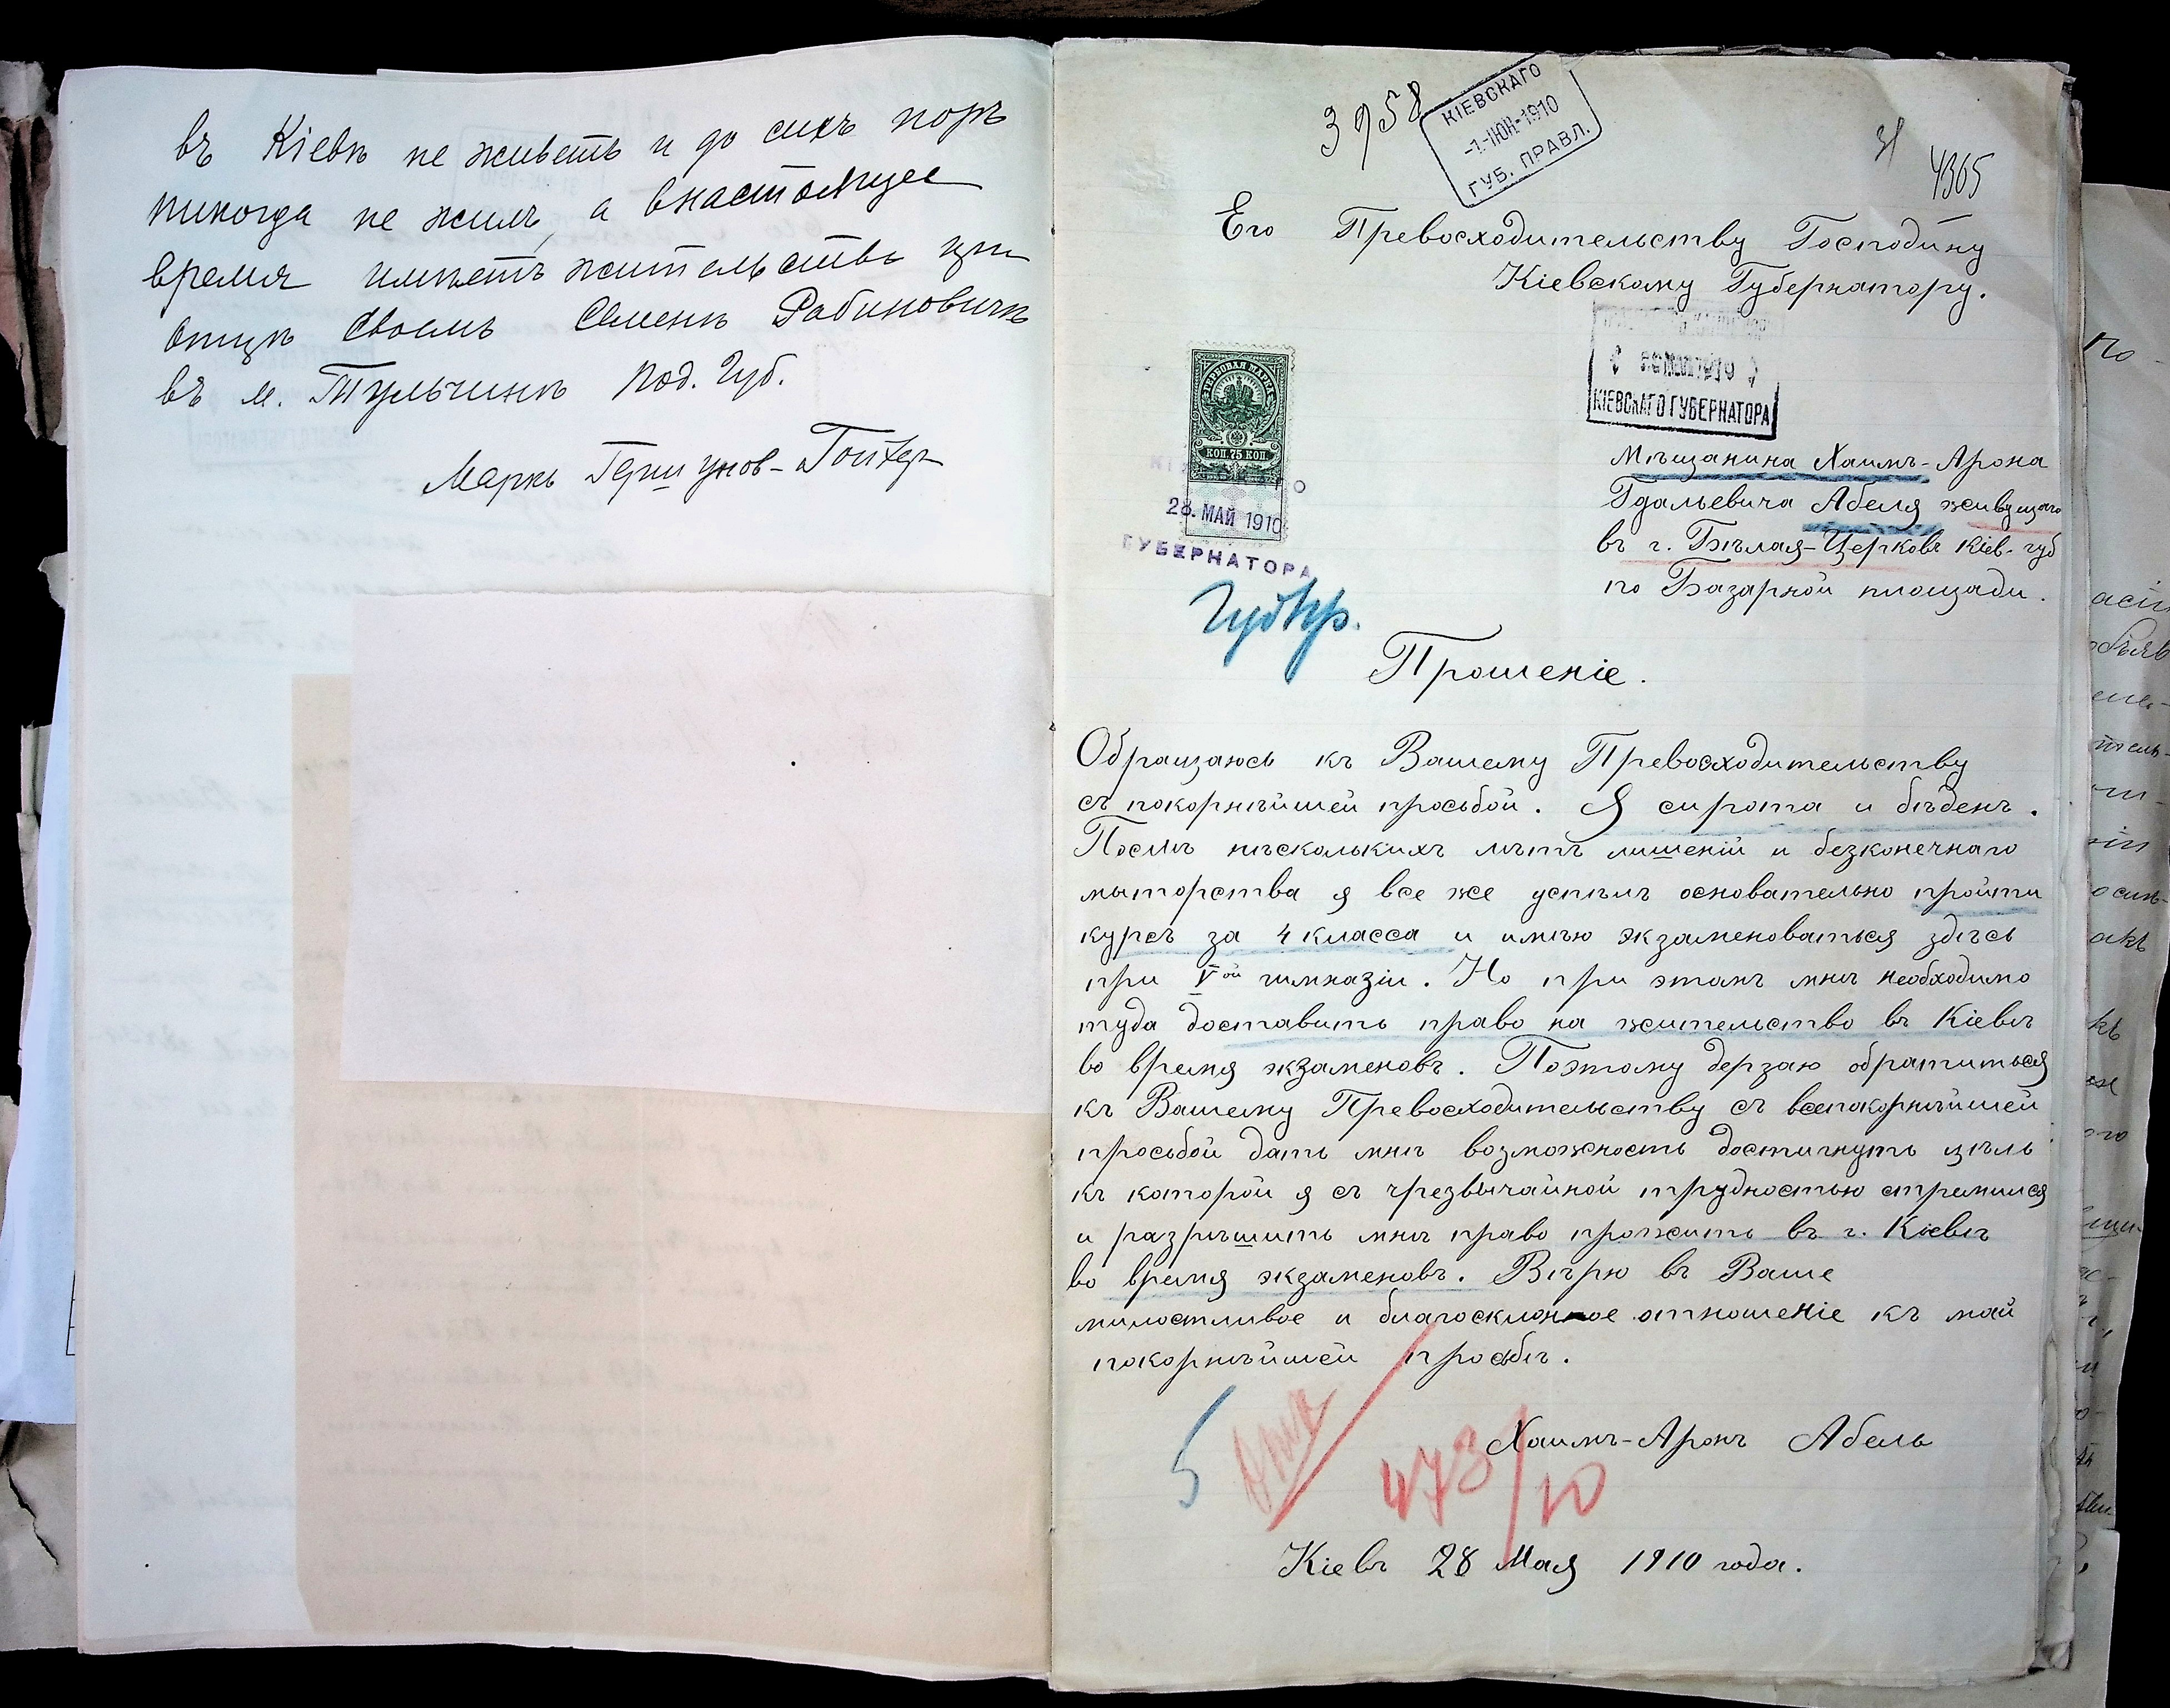 въ Кіевѣ не живетъ и до сихъ поръ
никогда не жилъ, а внастоящее
время имѣетъ жительство при
отцѣ своемъ Семенѣ Рабиновичѣ
въ м. Тульчинѣ Под. Губ.
Маркъ
3958
КІЕВСКАГО
-1.-ІЮН-1910
ГУБ. ПРАВЛ.
31
4365
Его Превосходительству Господину
Кіевскому Губернатору.
КІЕВСКАГО ГУБЕРНАТОРА
ГЕРБОВАЯ МАРКА
КОП. 75 КОП.
28. МАЙ 1910
ГУБЕРНАТОРА
Мѣщанина Хаимъ-Арона
Гдальевича Абеля живущаго
въ г. Бѣлая-Церковь Кіев. губ
по Базарной площади.
Прошеніе.
Обращаюсь къ Вашему Превосходительству
съ покорнѣйшей просьбой. Я сирота и бѣденъ.
Послѣ нѣсколькихъ лѣтъ лишеній и безконечнаго
мыторства я все же успѣлъ основательно пройти
курсъ за 4 класса и имѣю экзаменоваться здѣсь
при Vой гимназіи. Но при этомъ мнѣ необходимо
туда доставить право на жительство въ Кіевѣ
во время экзаменовъ. Поэтому дерзаю обратиться
къ Вашему Превосходительству съ всепокорнѣйшей
просьбой дать мнѣ возможность достигнуть цѣль
къ которой я съ чрезвычайной трудностью стремился
и разрѣшить мнѣ право прожить въ г. Кіевѣ
во время экзаменовъ. Вѣрю въ Ваше
милостливое и благосклонное отношеніе къ моей
покорнѣйшей просьбѣ.
5
478/10
Хаимъ-Аронъ Абель
Кіевъ 28 Мая 1910 года.